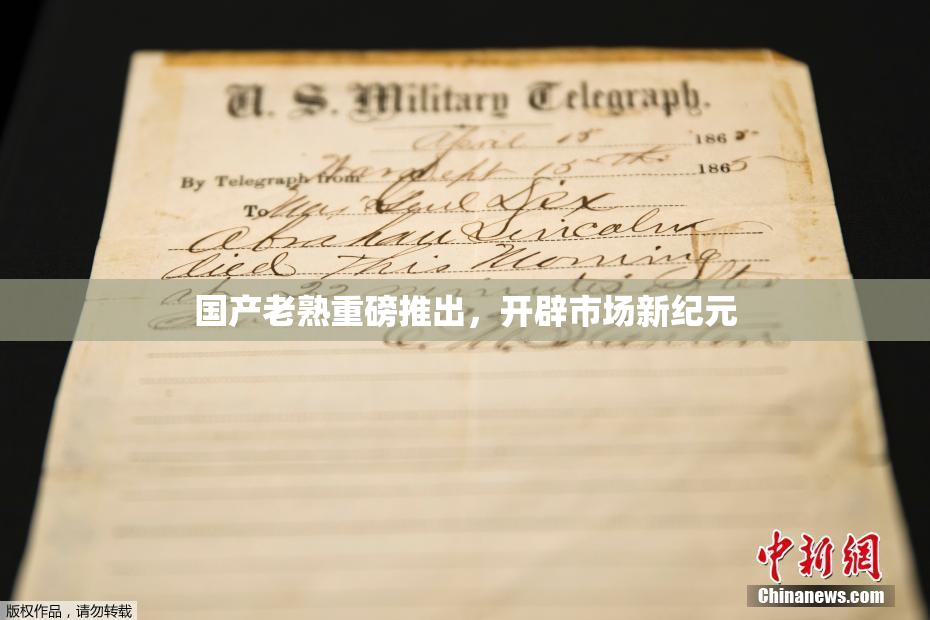 U. S. Military Telegraph.
April 15 1865
By Telegraph from War Dept 15th 1865
To Maj Genl Dix
Abraham Lincoln
died This Morning
at 22 minutes after
国产老熟重磅推出，开辟市场新纪元
E. M. Stanton
中新网
Chinanews.com
版权作品，请勿转载